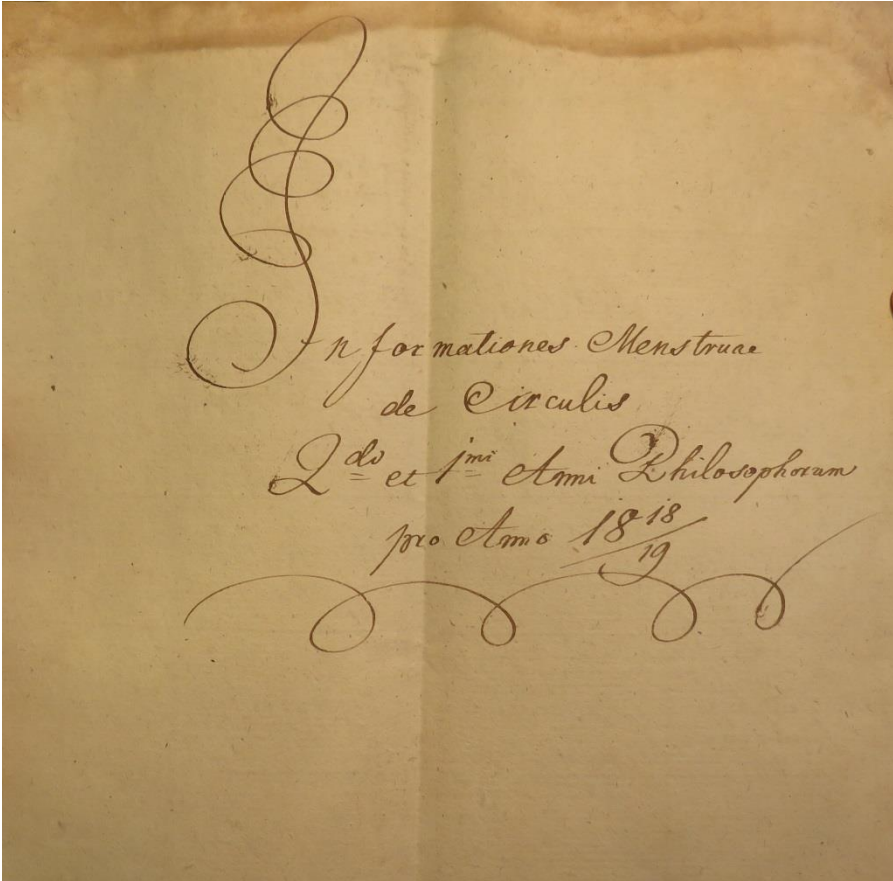 Informationes Menstruae
de Circulis
2do et 1mi Anni Philosophorum
pro Anno 1818/19